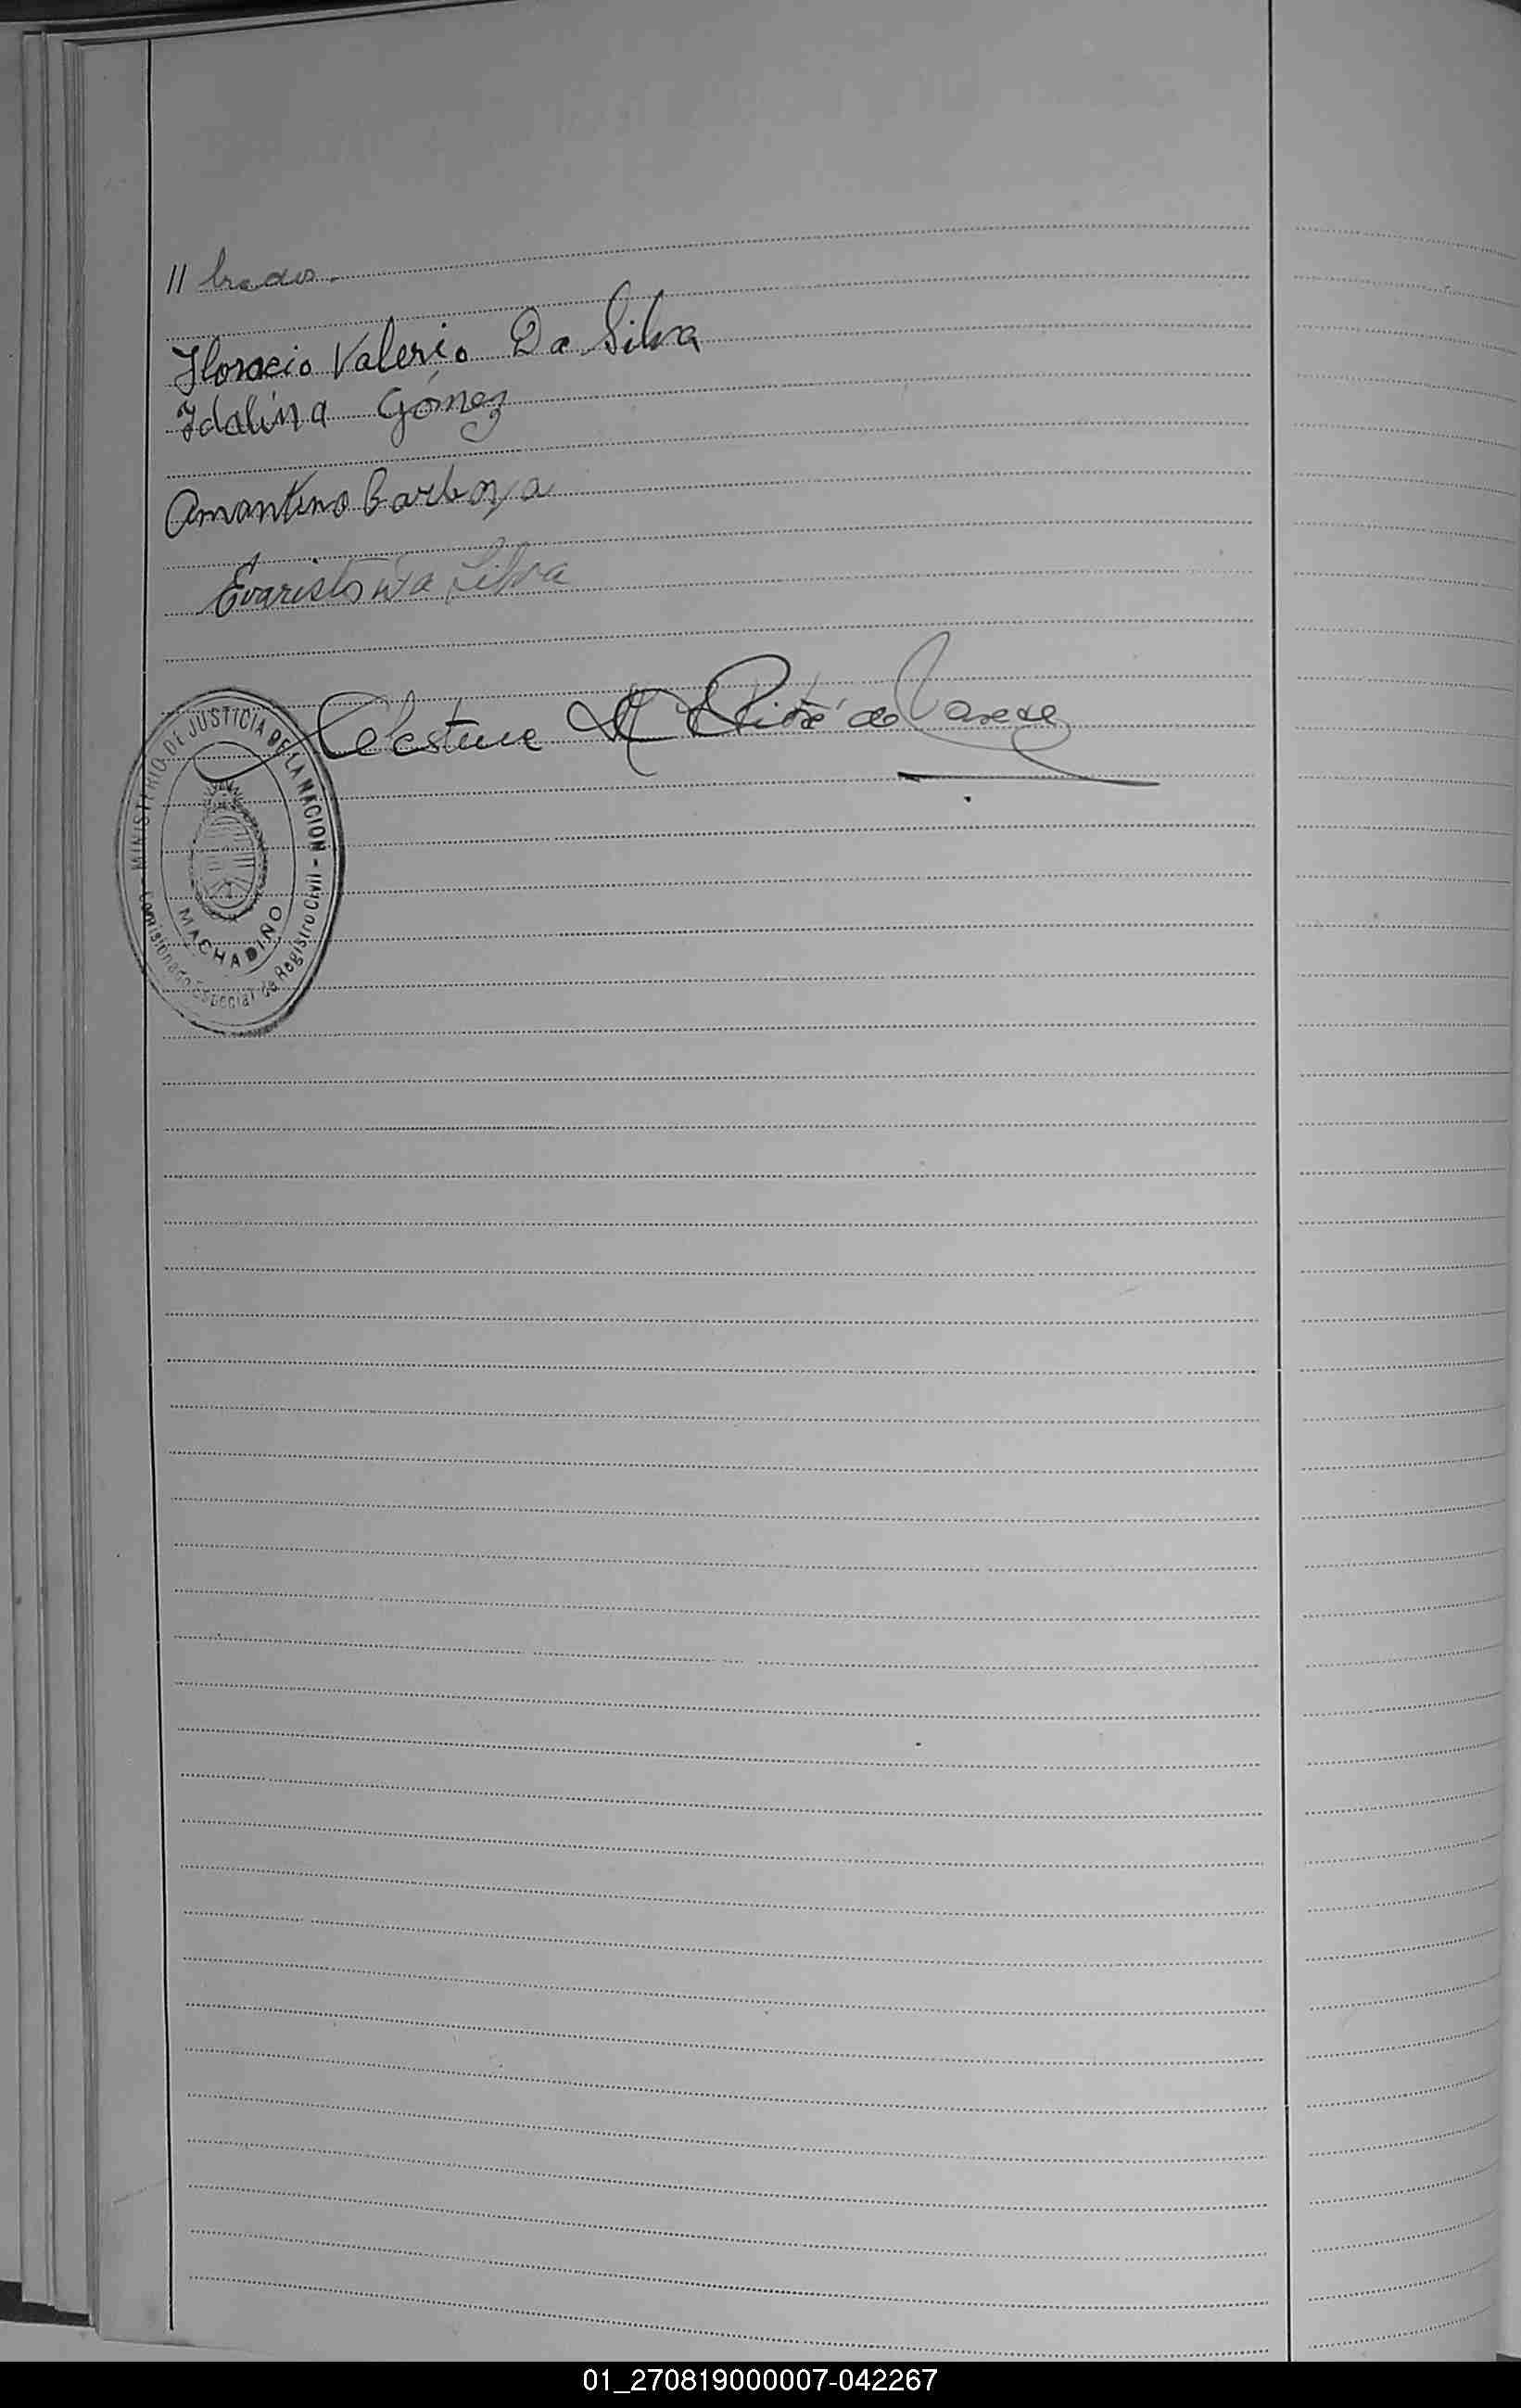 // brado.
Horacio Valerio Da Silva
Idalina Gómez
Amantino Barboza
Evaristo Da Silva
Celestina de
MINISTERIO DE JUSTICIA DE LA NACION -
Comisionado Especial de Registro Civil -
MACHADIÑO
01_270819000007-042267